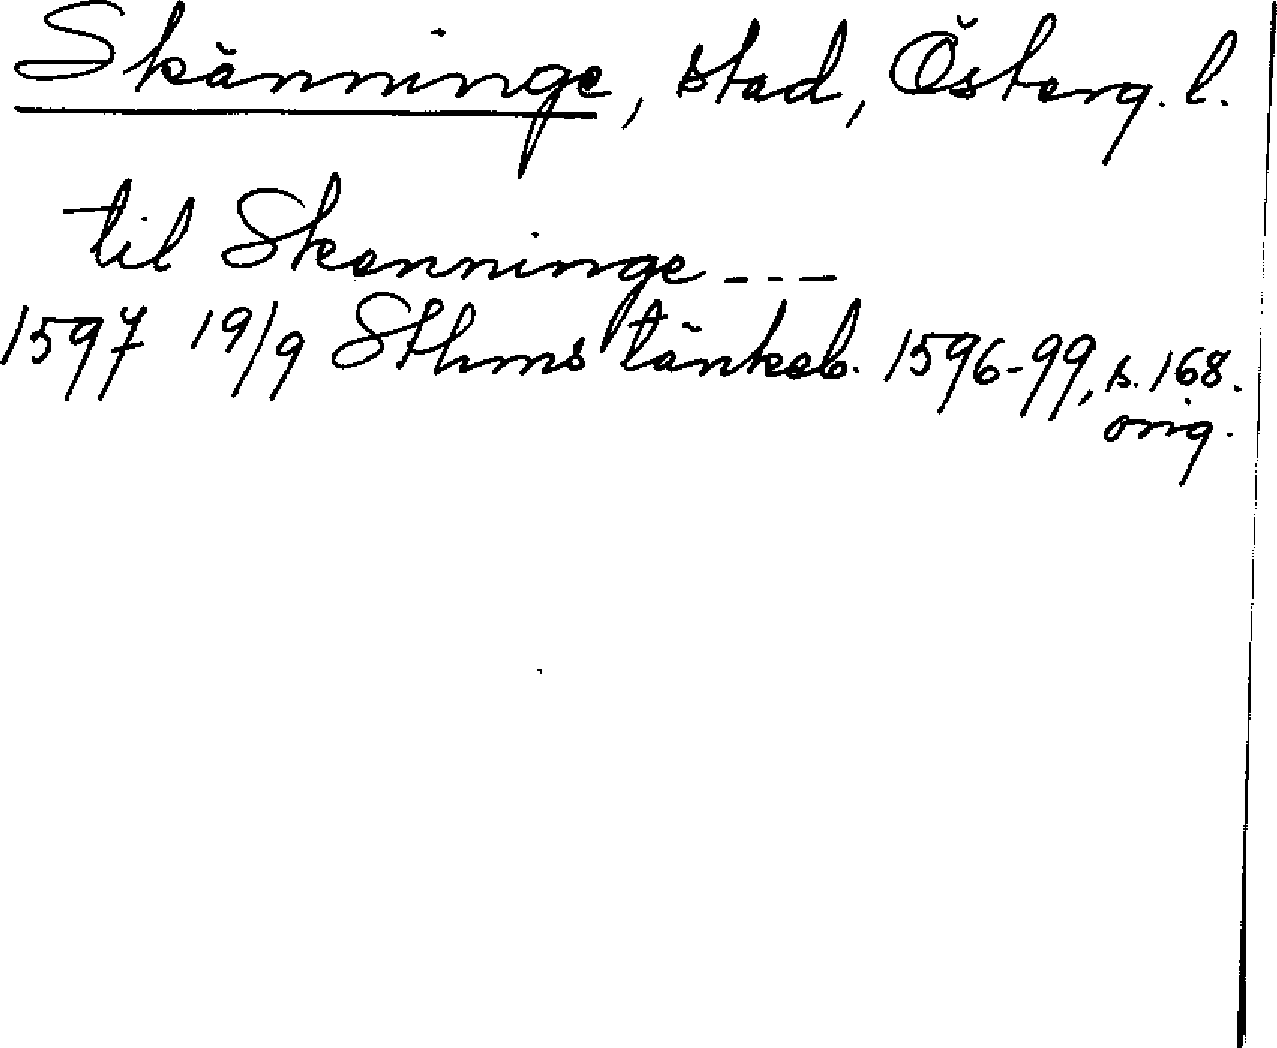 Skänninge, stad, Österg. l.
til Skenninge ---
1597 19/9 Sthms tänkeb. 1596-99, s. 168.
orig.